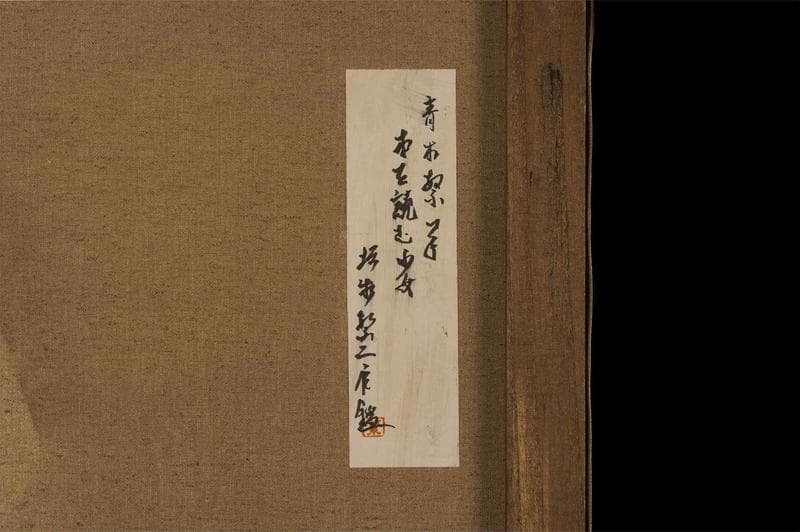 青木繁筆
本を読む少女
坂本繁二郎鑑